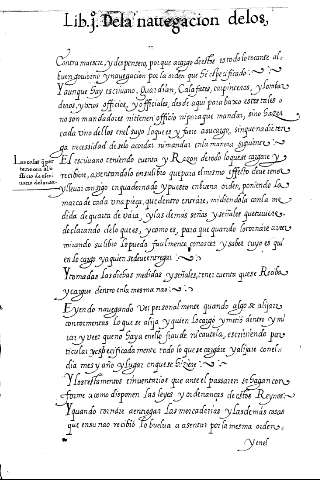 Lib. j. De la nauegacion de los,
Contra maestre, y despensero, por que acargo destos es todo lo tocante al
buen gouierno y nauegacion por la orden que se especificado:
Y aunque hay escriuano, Guardian, Calafates, carpinteros, y lombar
deros, y otros officios, y officiales, desde aqui para baxo estos tales o
no son mandadores ni tienen officio mejor que mandar, sino hazer
cada vno dellos en el suyo lo que es y fuere a su cargo, sin que nadie ten
ga necessidad de selo acordar ni mandar en la manera siguiente
Las cosas q per
tenecen al
officio de escri
uano de la nao.
El escriuano teniendo cuenta y Razon de todo lo que se cargare y
recibiere, assentandolo en su libro que para el mismo effecto deue tener
y lleuar consigo enquadernado y puesto en buena orden, poniendo la
marca de cada vna pieça, que dentro entrare, midiendola con la me
dida de quarta de vara, y las demas señas y señales que tuuiere
declarando cielo que es, y como es, para que quando lo tornare a ver
mirando su libro lo pueda facilmente conoscer y saber cuyo es quien
en lo cargo y a quien se deue entregar.
Y tomadas las dichas medidas y señales, tener cuenta que se Reciba
y cargue dentro en la mesma nao
E yendo nauegando ver personalmente quando algo se alijare
con tormentos lo que se alija y quien lo cargo y metio dentro y mi
rar y veer que no haya en ello fraude ni cautela, escriuiendo par
ticular y especificada mente todo lo que se cargare y alijare con el
dia mes y año y lugar en que se hiziere
Y los testamentos e inuentarios que ante el passaren se hagan con
forme a como disponen las leyes y ordenanças de estos Reynos
Y quando tornare a entregar las mercaderias y las demas cosas
que en su nao recibio lo buelua a asentar por la mesma orden
Y en el